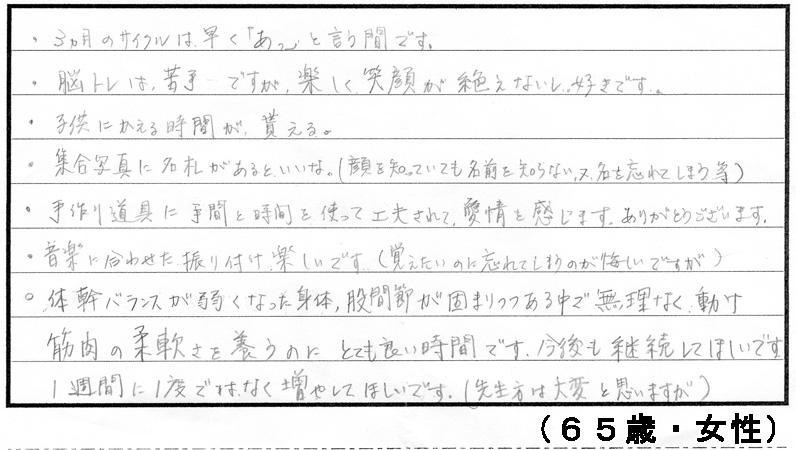 ・3ヵ月のサイクルは、早く「あっ」と言う間です。
・脳トレは、苦手ーですが、楽しく笑顔が絶えないし、好きです。
・子供にかえる時間が、貰える。
・集合写真に名札があるといいな。(顔を知っていても名前を知らない、又、名を忘れてしまう等)
・手作り道具に手間と時間を使って工夫されて、愛情を感じます。ありがとうございます。
・音楽に合わせた振り付け、楽しいです。(覚えたいのに忘れてしまうのが悔しいですが)
○体幹バランスが弱くなった身体、股間節が固まりつつある中で無理なく、動す
筋肉の柔軟さを養うのにとても良い時間です。今後も継続してほしいです
1週間に1度ではなく増やしてほしいです。(先生方は大変と思いますが)
(65歳・女性)